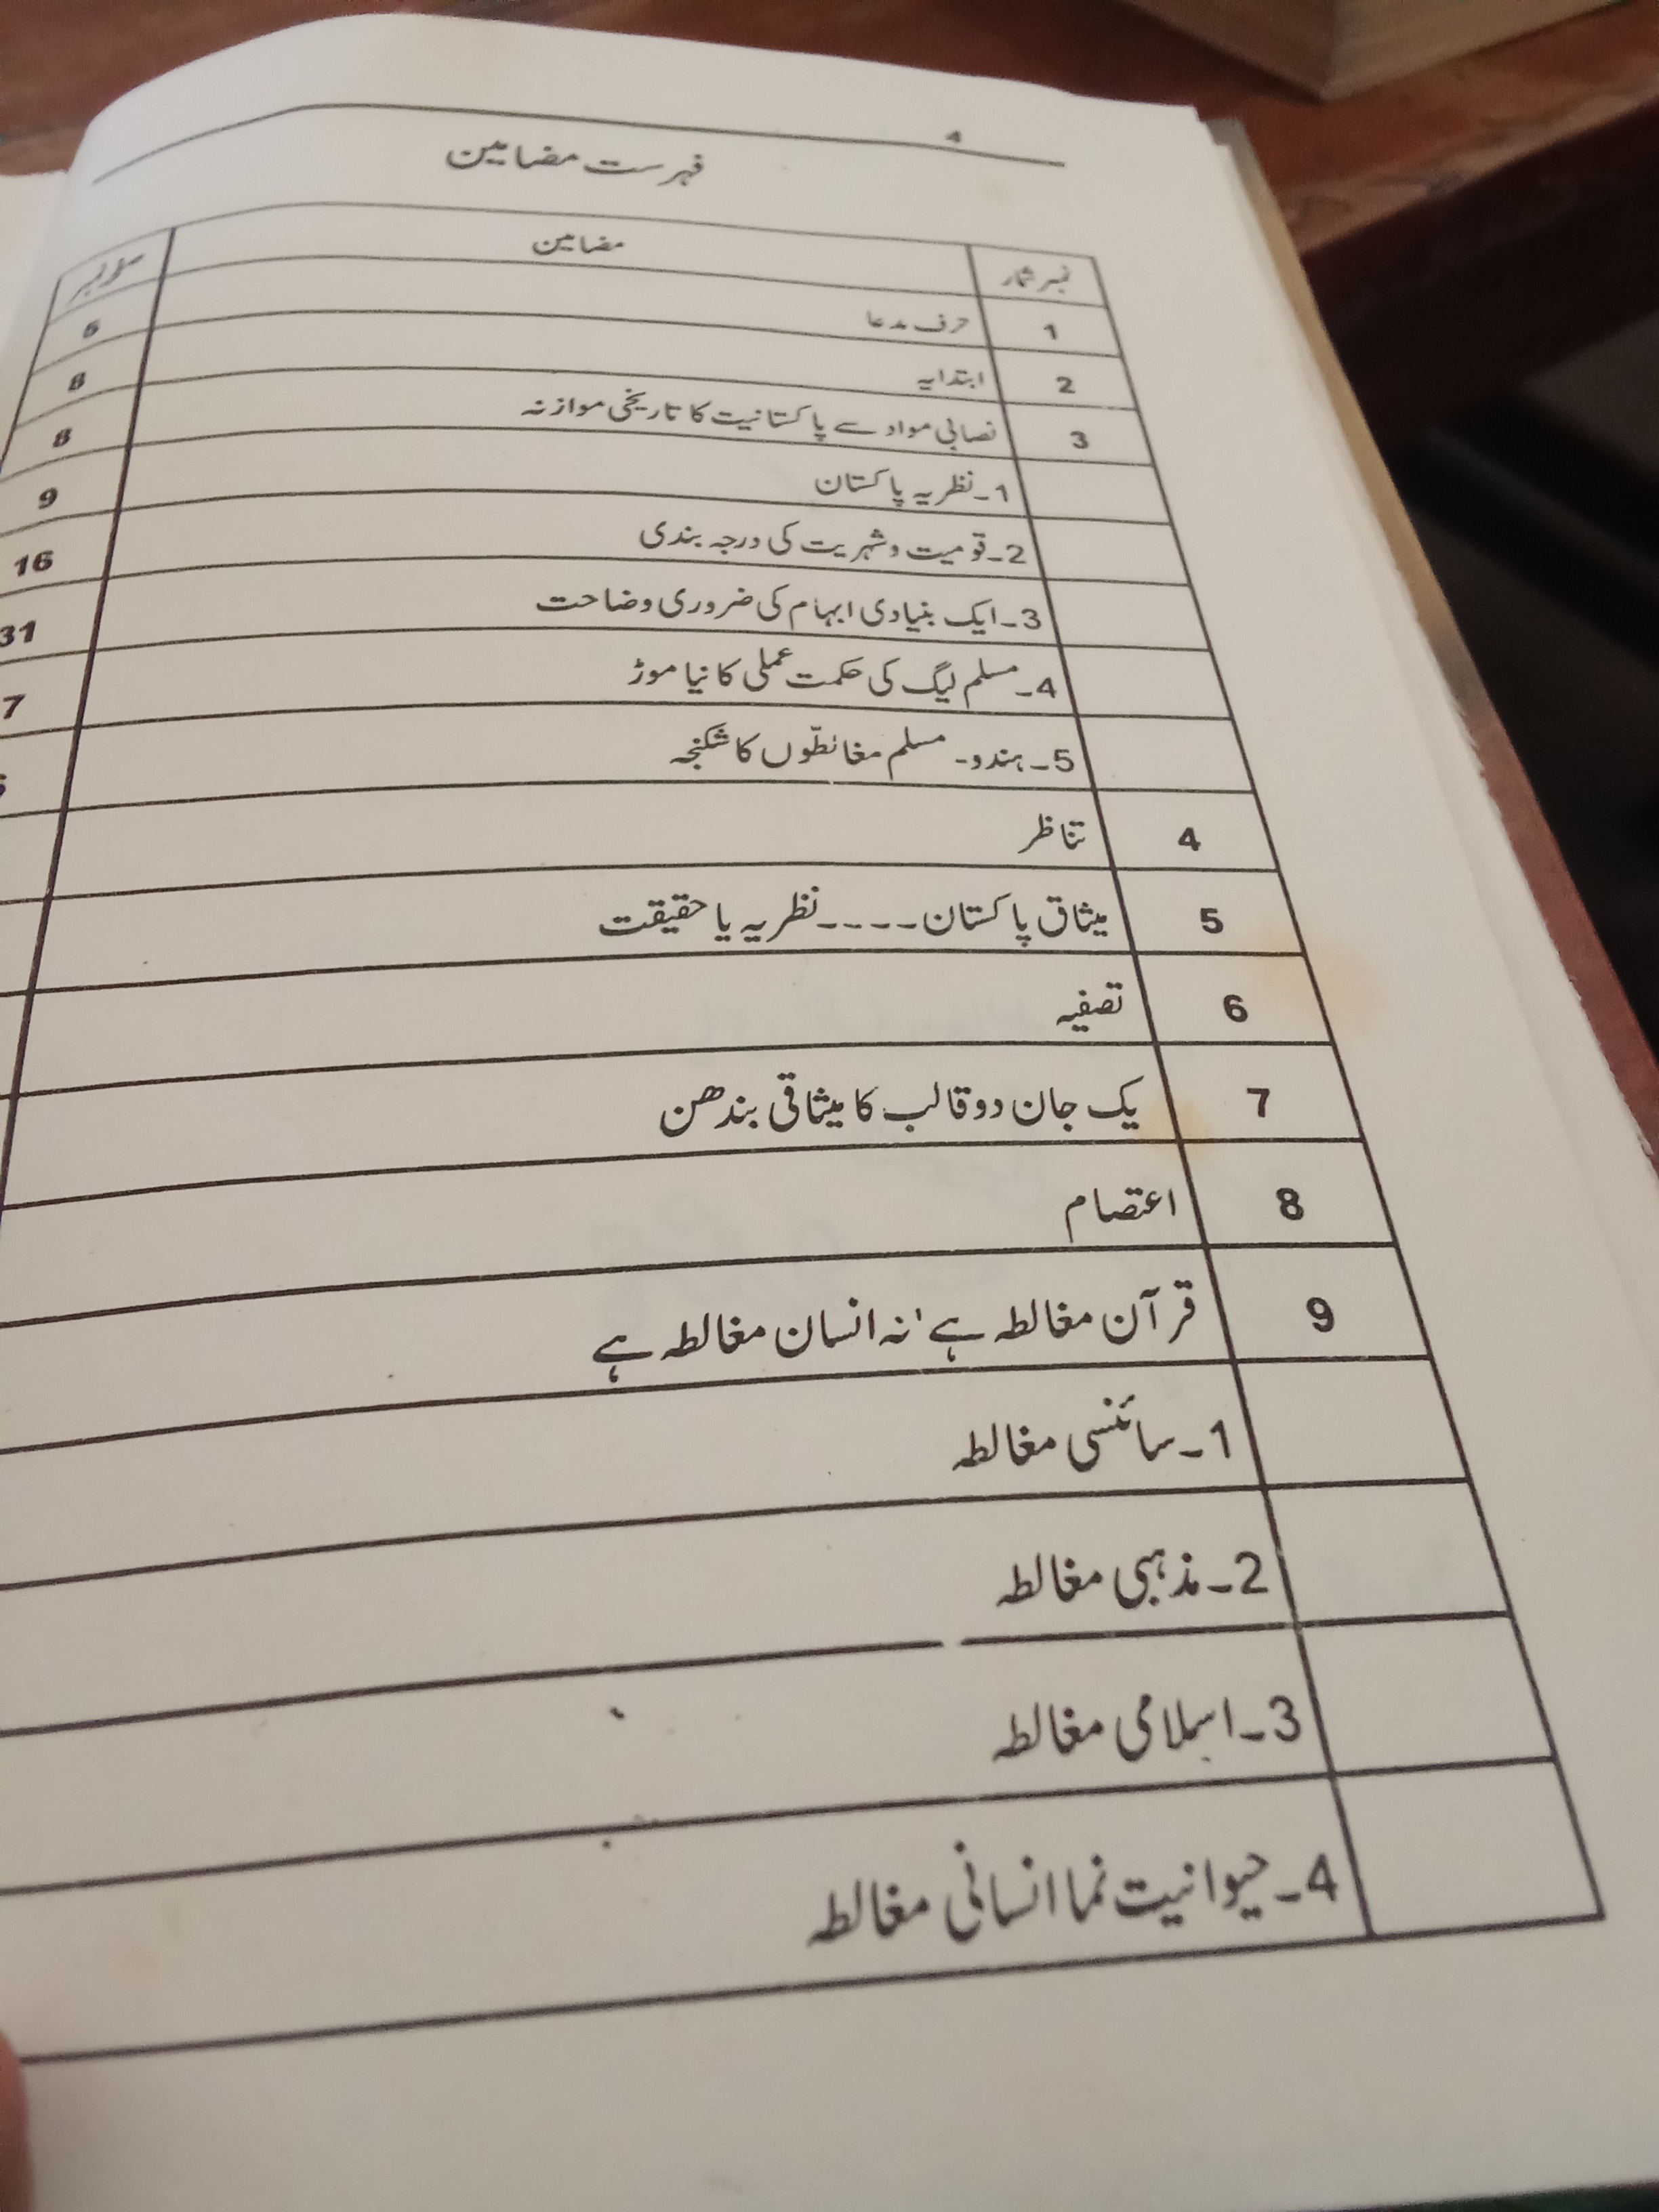 4
فہرست مضامین
نمبر شمار مضامین صفحہ نمبر
1 حرف مدعا 5
2 ابتدایہ 8
3 نصابی مواد سے پاکستانیت کا تاریخی موازنہ 8
1۔نظریہ پاکستان 9
2۔قومیت و شہریت کی درجہ بندی 16
3۔ایک بنیادی ابہام کی ضروری وضاحت 31
4۔مسلم لیگ کی حکمت عملی کا نیا موڑ 7
5۔ہندو۔ مسلم مغالطوں کا شکنجہ
4 تناظر
5 میثاق پاکستان ----نظریہ یا حقیقت
6 تصفیہ
7 یک جان دو قالب کا میثاقی بندھن
8 اعتصام
9 قرآن مغالطہ ہے' نہ انسان مغالطہ ہے
1۔سائنسی مغالطہ
2۔مذہبی مغالطہ
3۔اسلامی مغالطہ
4۔حیوانیت نما انسانی مغالطہ